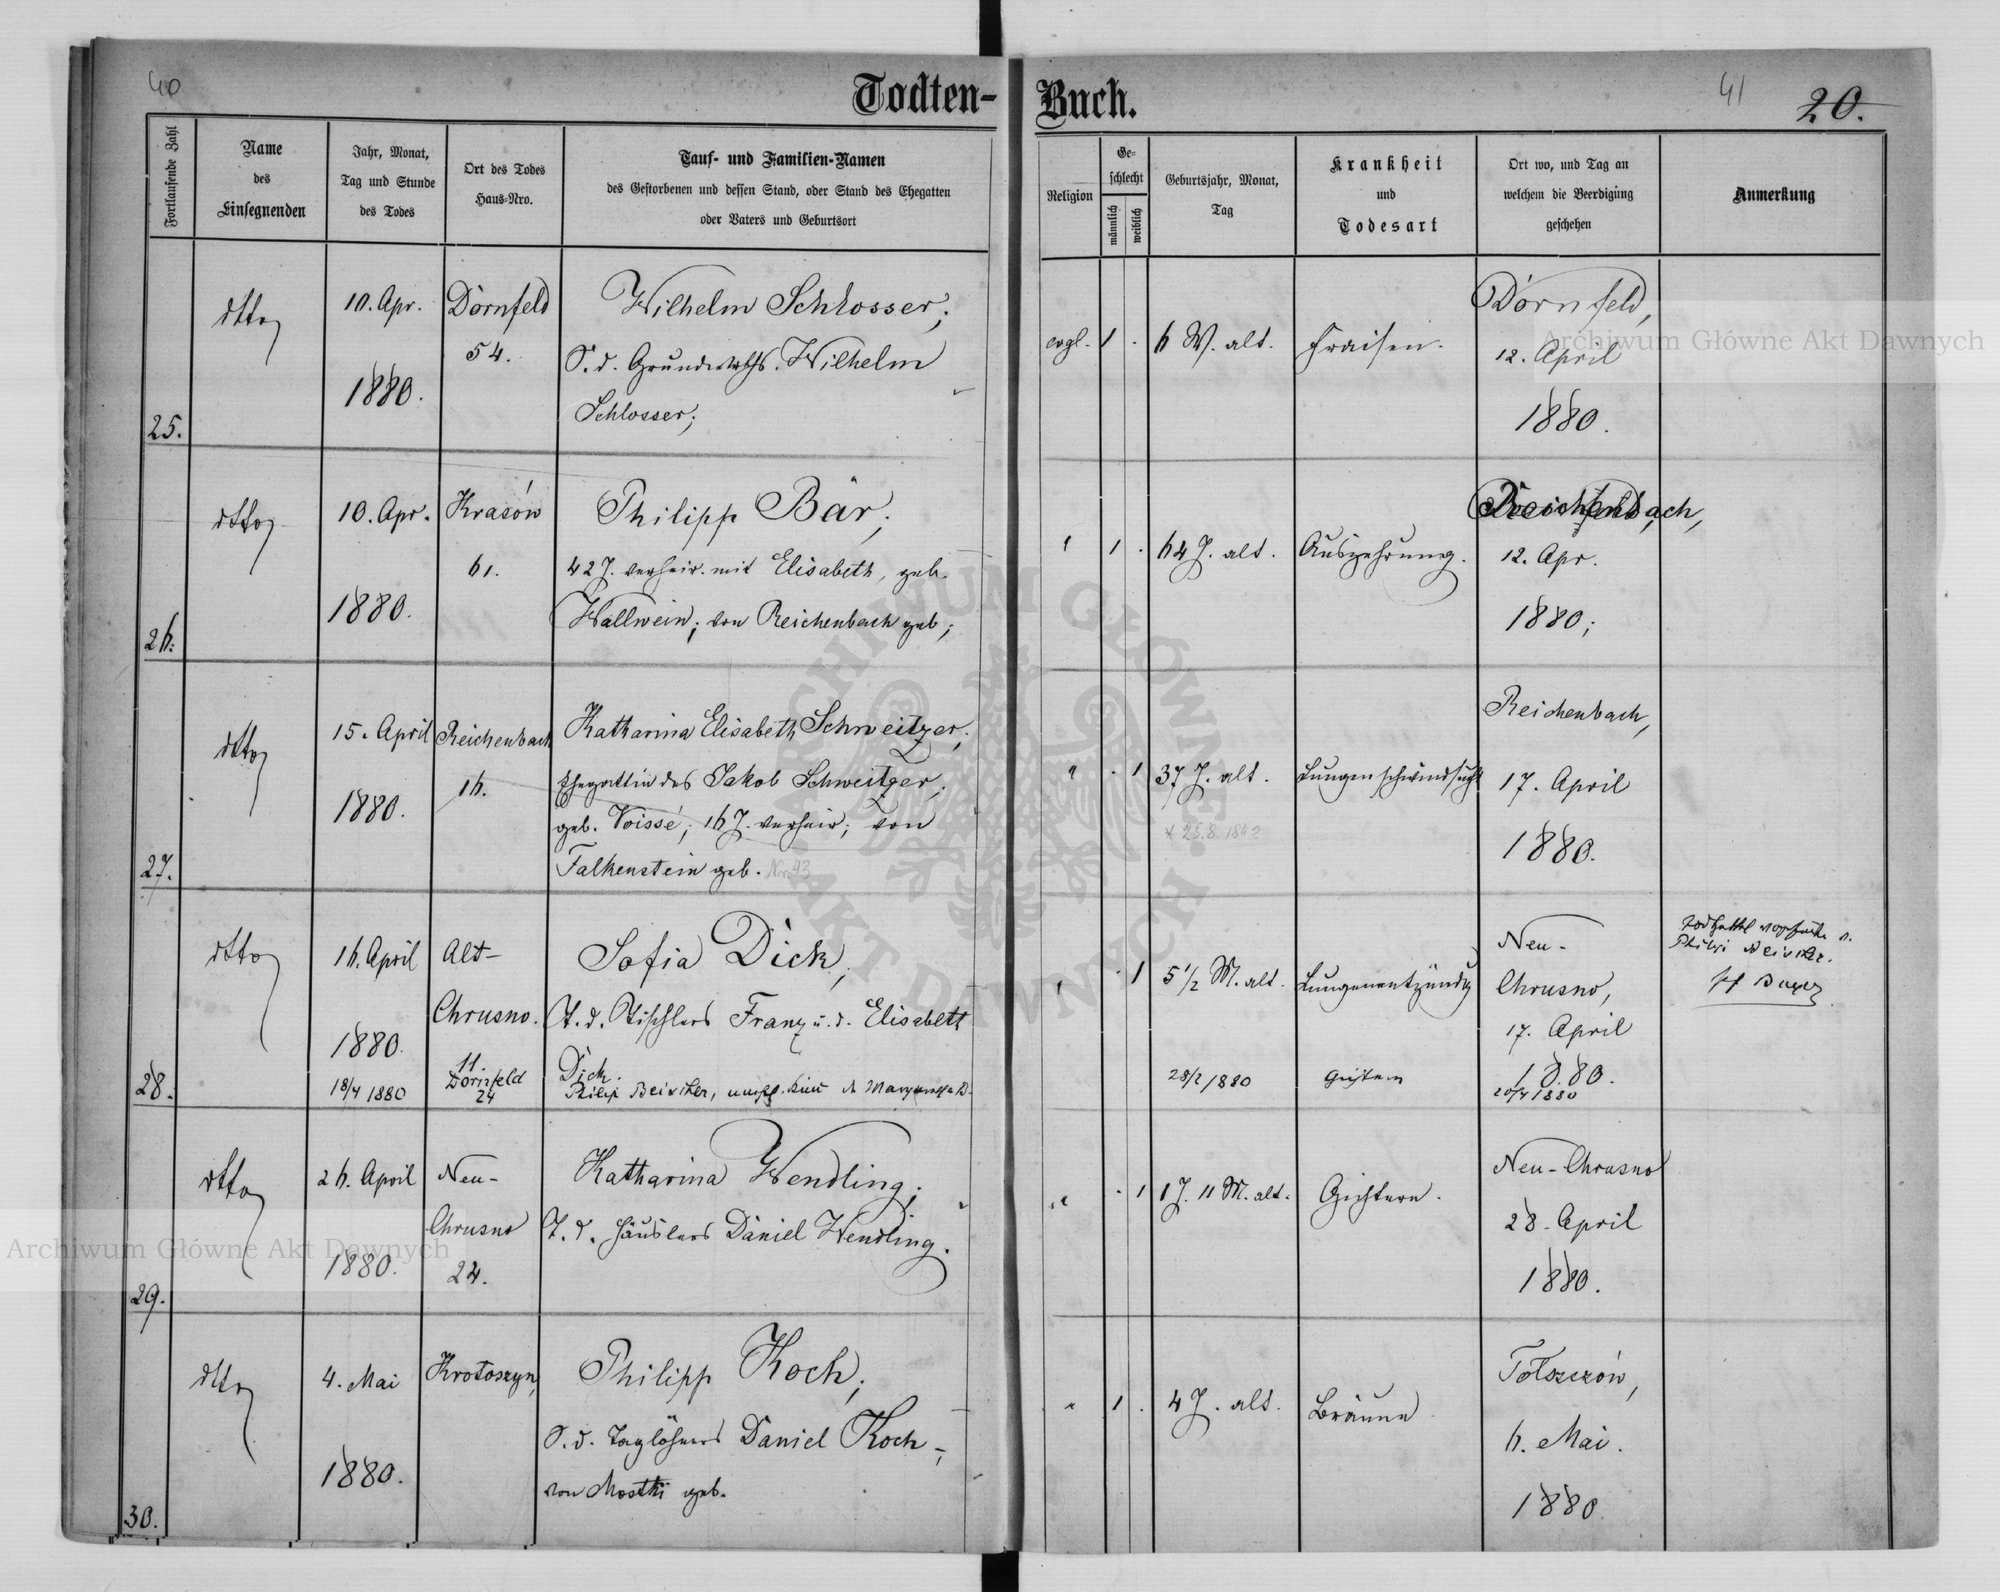 40
Todten-
Buch.
41
20.
Fortlaufende Zahl
Name
des
Einsegnenden
Jahr, Monat,
Tag und Stunde
des Todes
Ort des Todes
Haus-Nro.
Tauf- und Familien-Namen
des Gestorbenen und dessen Stand, oder Stand des Ehegatten
oder Vaters und Geburtsort
Religion
Ge-
schlecht
männlich
weiblich
Geburtsjahr, Monat,
Tag
Krankheit
und
Todesart
Ort wo, und Tag an
welchem die Beerdigung
geschehen
Anmerkung
25.
dtto
10. Apr.
1880.
Dörnfeld
54.
Wilhelm Schlosser;
S. d. Grundwrths. Wilhelm
Schlosser;
evgl. 1 .
6 W. alt.
Fraisen.
Dörnfeld,
12. April
1880.
26.
dtto
10. Apr.
1880.
Krasów
61.
Philipp Bär;
42 J. verheir. mit Elisabeth, geb.
Wallwein; von Reichenbach geb;
" 1 .
64 J. alt.
Auszehrung.
Reichenbach,
12. Apr.
1880;
27.
dtto
15. April
1880.
Reichenbach
16.
Katharina Elisabeth Schweitzer;
Ehegattin des Jakob Schweitzer;
geb. Voissé; 16 J. verheir; von
Falkenstein geb. Nr. 43
" . 1
37 J. alt.
* 25.8.1842
Lungenschwindsucht
Reichenbach,
17. April
1880.
28.
dtto
16. April
1880.
18/4 1880
Alt-
Chrusno.
11.
Dornfeld
24
Sofia Dick,
T. d. Tischlers Franz u. d. Elisabeth
Dick.
Philipp
" . 1
5 1/2 M. alt.
28/2 1880
Lungenentzündg
Gichtern
Neu-
Chrusno,
17. April
1880.
20/4 1880
29.
dtto
26. April
1880.
Neu-
Chrusno
22.
Katharina Wendling;
T. d. Häuslers Daniel Wendling.
" . 1
1 J. 11 M. alt.
Gichtern.
Neu-Chrusno
28. April
1880.
30.
dtto
4. Mai
1880.
Krotoszyn,
Philipp Koch;
S. d. Taglöhners Daniel Koch;
von Mostki geb.
" 1 .
4 J. alt.
Bräune
Tołszczów,
6. Mai.
1880
Archiwum Główne Akt Dawnych
Archiwum Główne Akt Dawnych
ARCHIWUM GŁÓWNE
AKT DAWNYCH